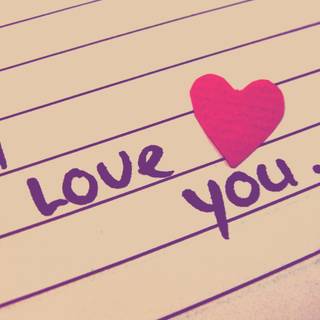 I LOVE YOU.